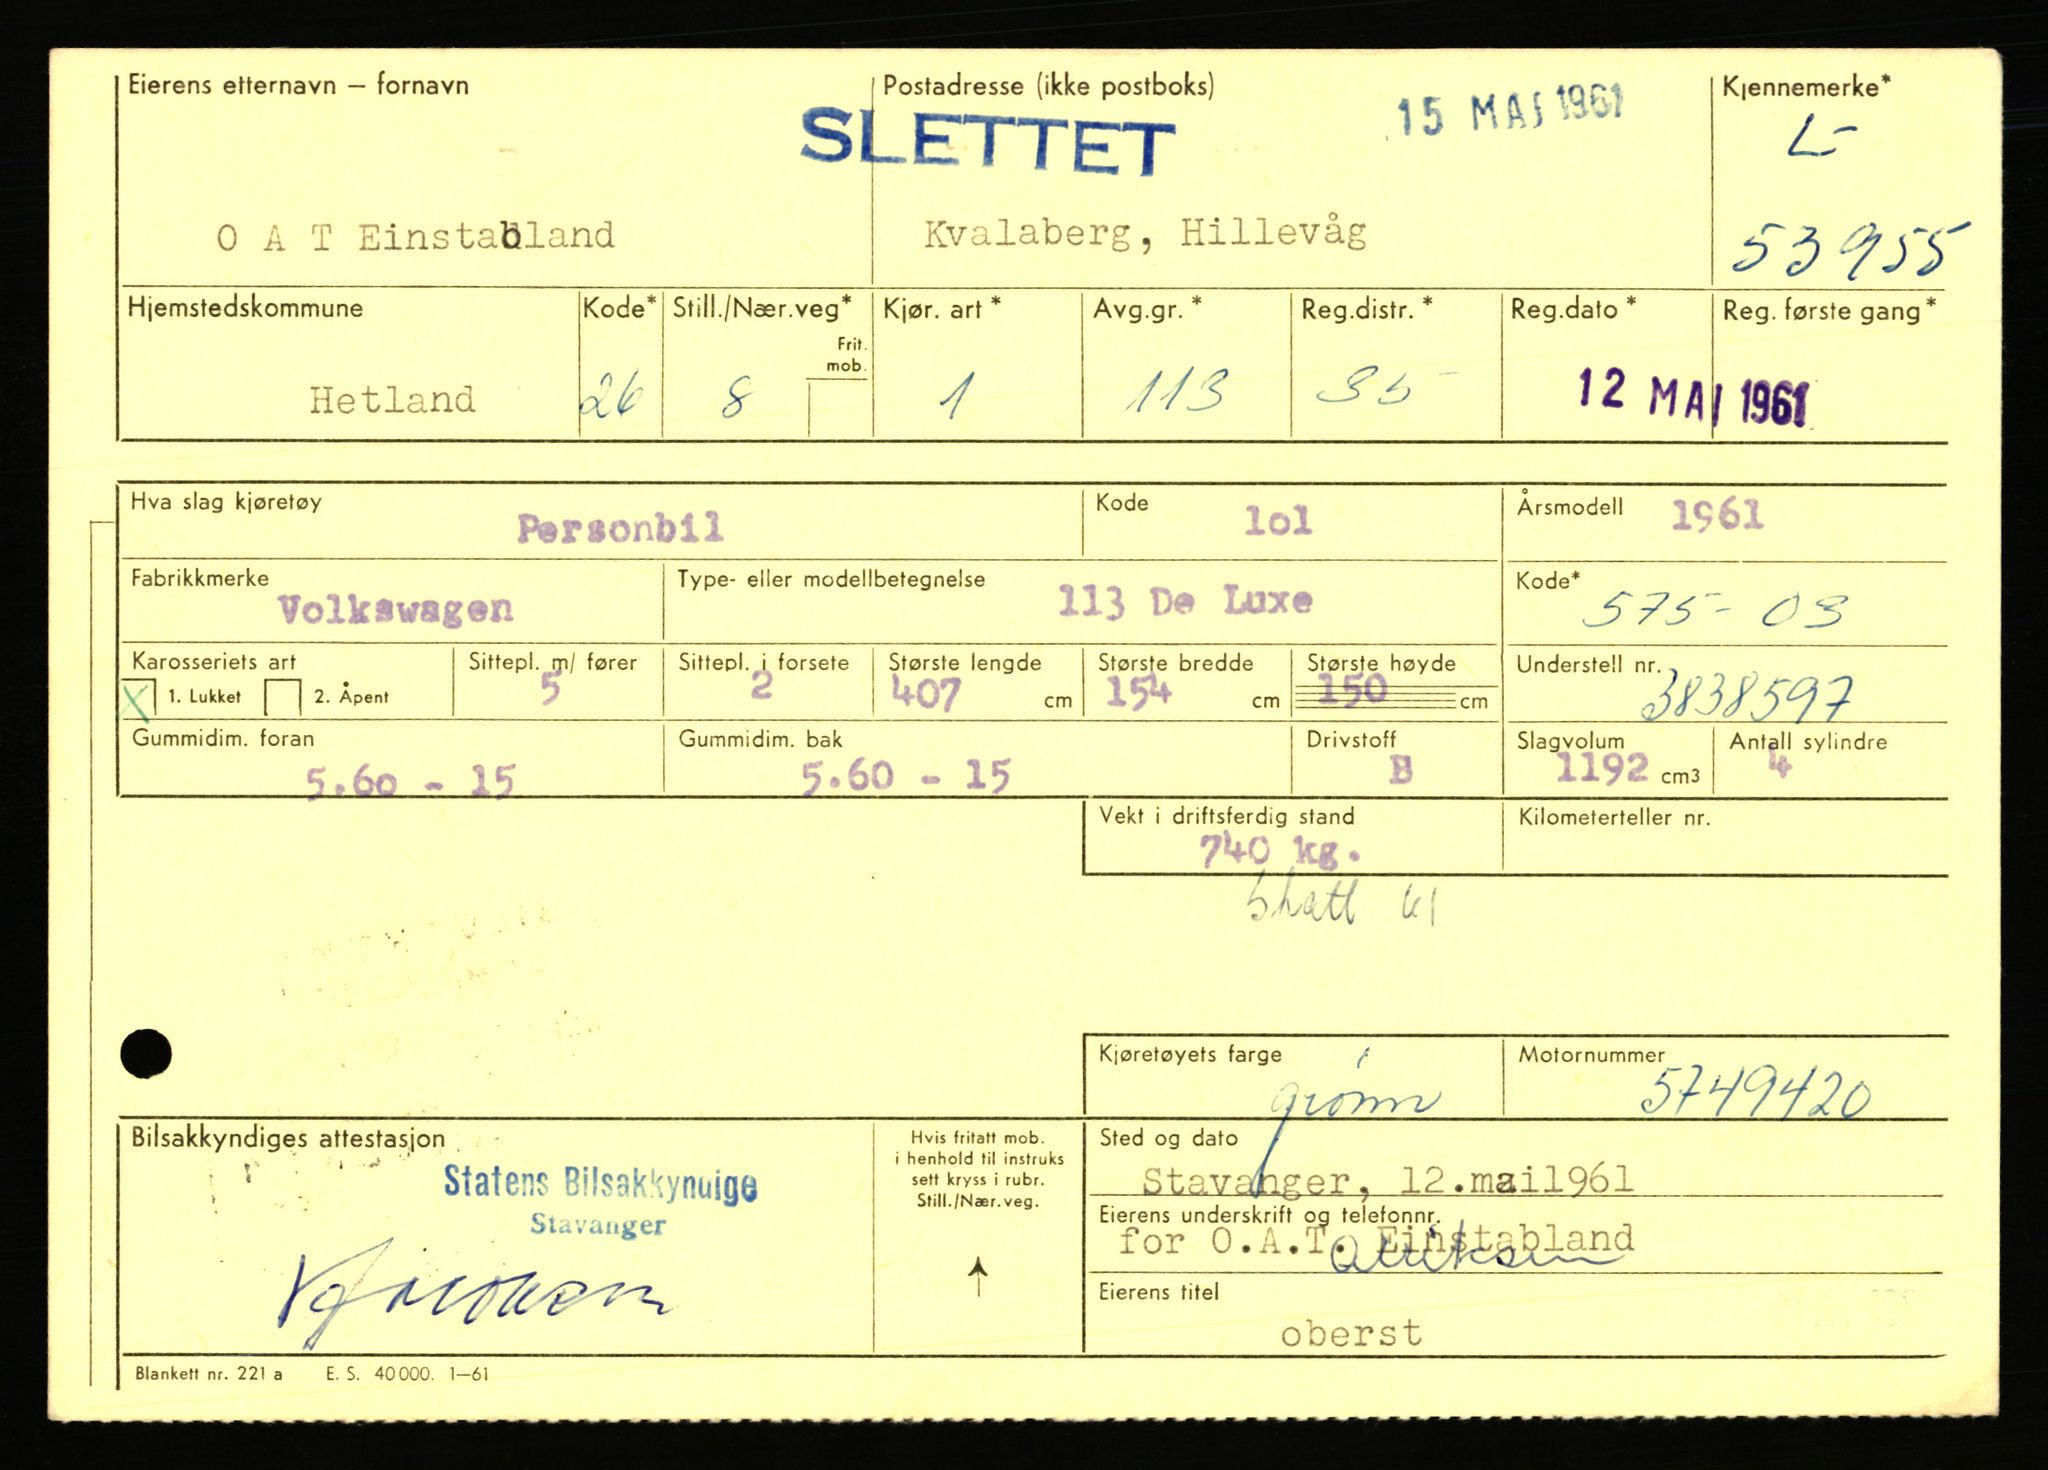 Eierens etternavn – fornavn
Postadresse (ikke postboks)
15 MAI 1961
Kjennemerke*
SLETTET
L-
O A T Einstabland
Kvalaberg, Hillevåg
53955
Hjemstedskommune
Kode*
Still./Nær.veg*
Kjør. art *
Avg.gr. *
Reg.distr. *
Reg.dato *
Reg. første gang*
Frit. mob.
Hetland
26
8
1
113
35
12 MAI 1961
Hva slag kjøretøy
Personbil
Kode
lol
Årsmodell
1961
Fabrikkmerke
Volkswagen
Type- eller modellbetegnelse
113 De Luxe
Kode*
575-03
Karosseriets art
X 1. Lukket 2. Åpent
Sittepl. m/ fører
5
Sittepl. i forsete
2
Største lengde
407 cm
Største bredde
154 cm
Største høyde
150 cm
Understell nr.
3838597
Gummidim. foran
5.60 - 15
Gummidim. bak
5.60 - 15
Drivstoff
B
Slagvolum
1192 cm3
Antall sylindre
4
Vekt i driftsferdig stand
740 kg.
Kilometerteller nr.
Skatt 61
Kjøretøyets farge
grønn
Motornummer
5749420
Bilsakkyndiges attestasjon
Statens Bilsakkyndige
Stavanger
Hvis fritatt mob.
i henhold til instruks
sett kryss i rubr.
Still./Nær.veg.
Sted og dato
Stavanger, 12.mai1961
Eierens underskrift og telefonnr.
for O.A.T. Einstabland
Eierens titel
oberst
Blankett nr. 221 a E. S. 40 000. 1–61